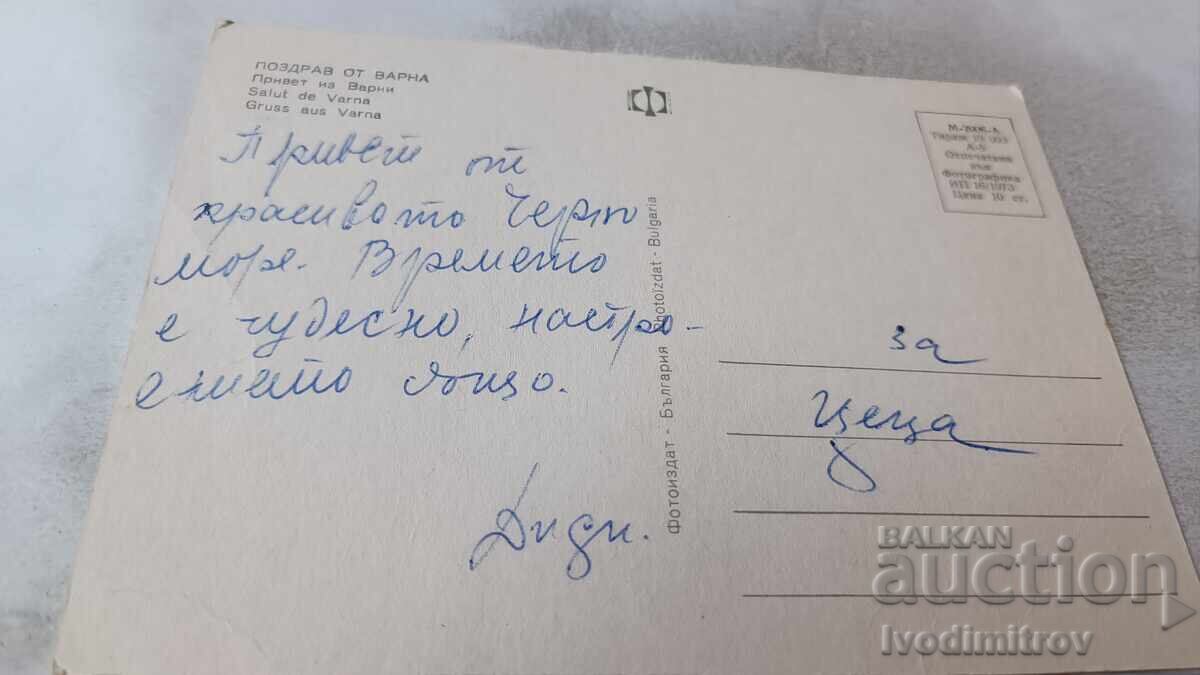 ПОЗДРАВ ОТ ВАРНА
Привет из Варни
Salut de Varna
Gruss aus Varna
Привет от
красивото Черно
море. Времето
е чудесно, настро-
ението също.
Диди.
Фотоиздат - България Photoizdat - Bulgaria
Тираж
А-5
Отпечатано
във
Фотографика
ИП 16/1973
Цена 10 ст.
за
Цеца
BALKAN
auction
Ivodimitrov